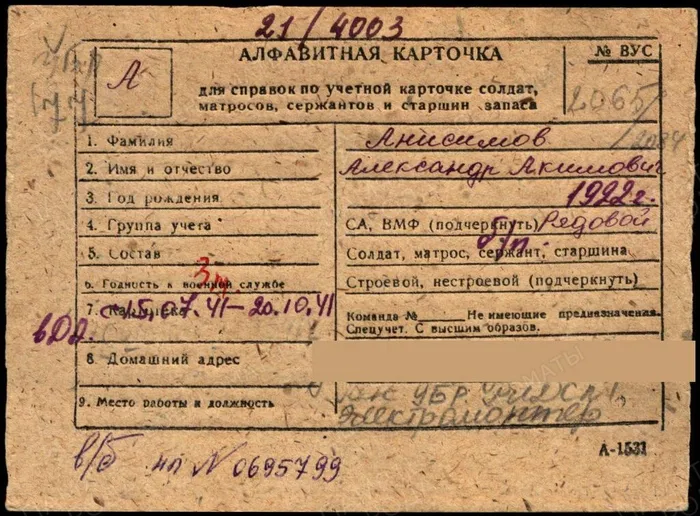 21/4003
АЛФАВИТНАЯ КАРТОЧКА
№ ВУС
А
для справок по учетной карточке солдат,
матросов, сержантов и старшин запаса
2065/
1. Фамилия Анисимов
2. Имя и отчество Александр Акимович
3. Год рождения 1922 г.
4. Группа учета СА, ВМФ (подчеркнуть) Рядовой
5. Состав Солдат, матрос, сержант, старшина
б/п.
6. Годность к военной службе Строевой, нестроевой (подчеркнуть)
7. с 15.07.41–20.10.41 Команда № Не имеющие предназначения.
Спецучет. С высшим образов.
в ДА.
8. Домашний адрес
УБР
9. Место работы и должность электромонтер
А-1531
в/б нп № 0695799